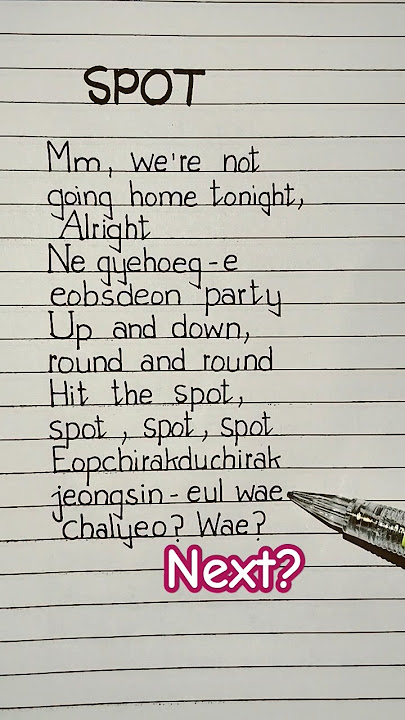 SPOT
Mm, we're not
going home tonight,
Alright
Ne gyehoeg-e
eobsdeon party
Up and down,
round and round
Hit the spot,
spot, spot, spot
Eopchirakduchirak
jeongsin-eul wae
chaliyeo? Wae?
Next?